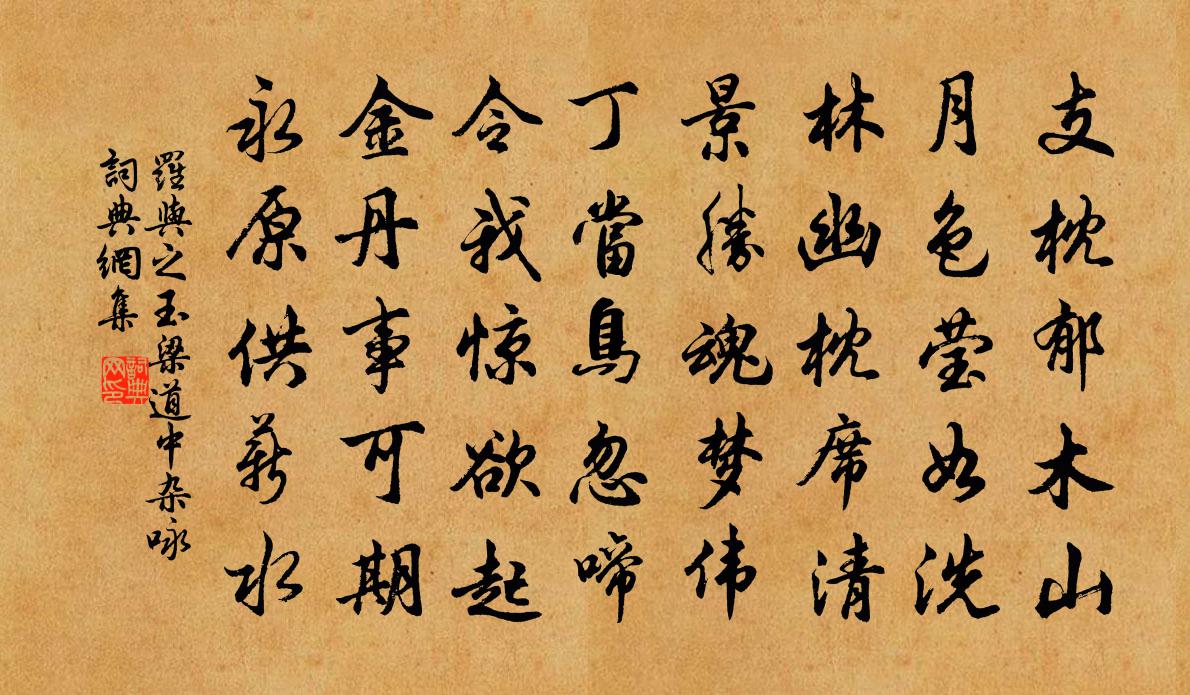 支枕郁木山
月色莹如洗
林幽枕席清
景勝魂梦伟
丁當鳥忽啼
令我惊欲起
金丹事可期
永原供薪水
羅與之玉梁道中杂咏
詞典網集
詞典网印